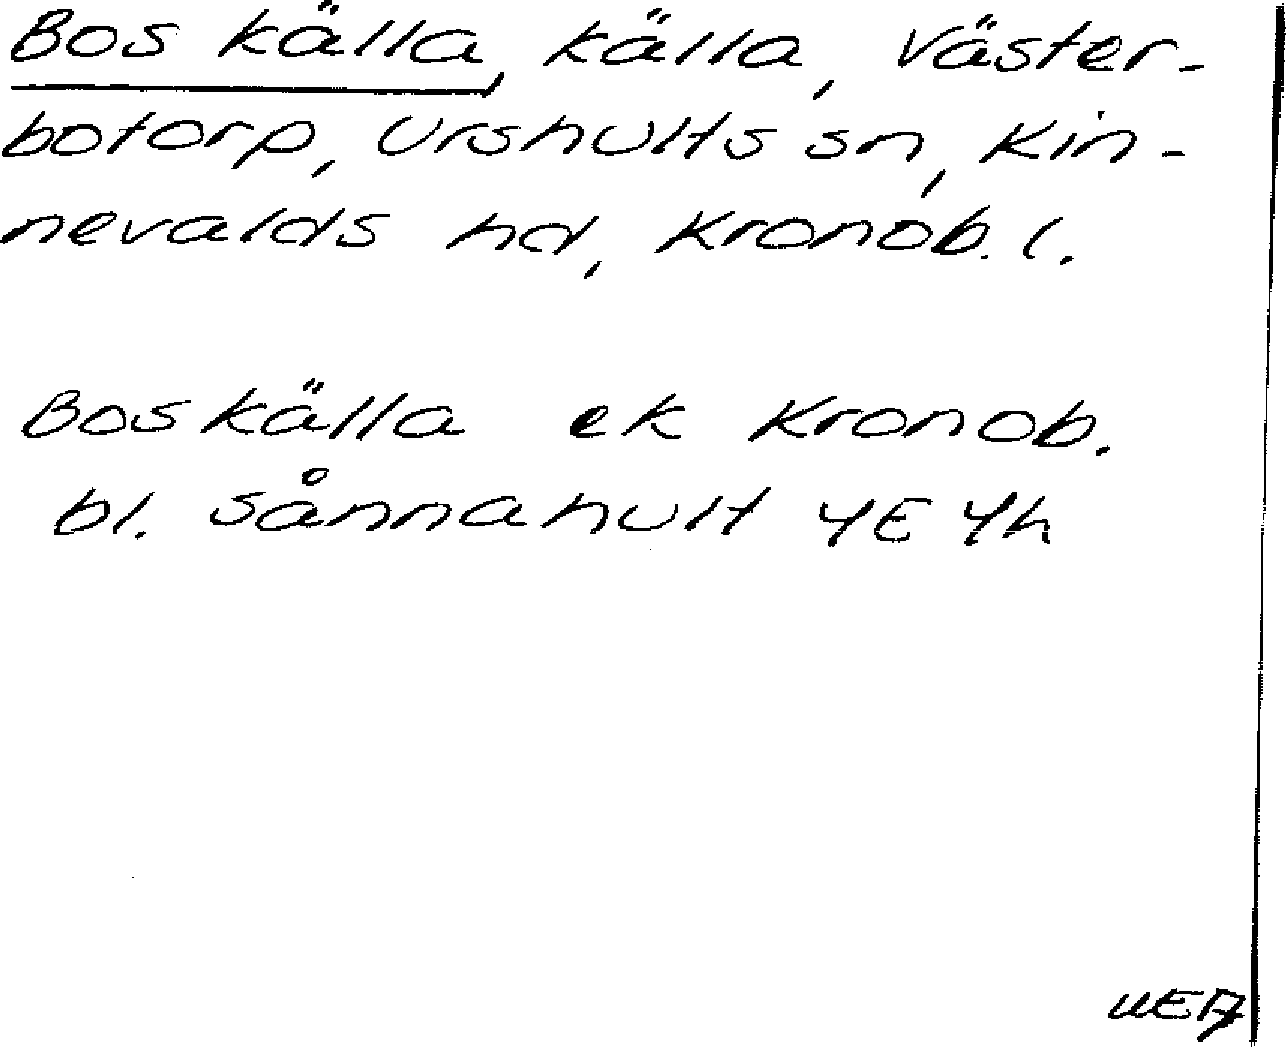 Bos källa, källa, Väster-
botorp, Urshults sn, Kin-
nevalds hd, Kronob. l.
Boskälla ek Kronob.
bl. Sånnahult 4E 4h